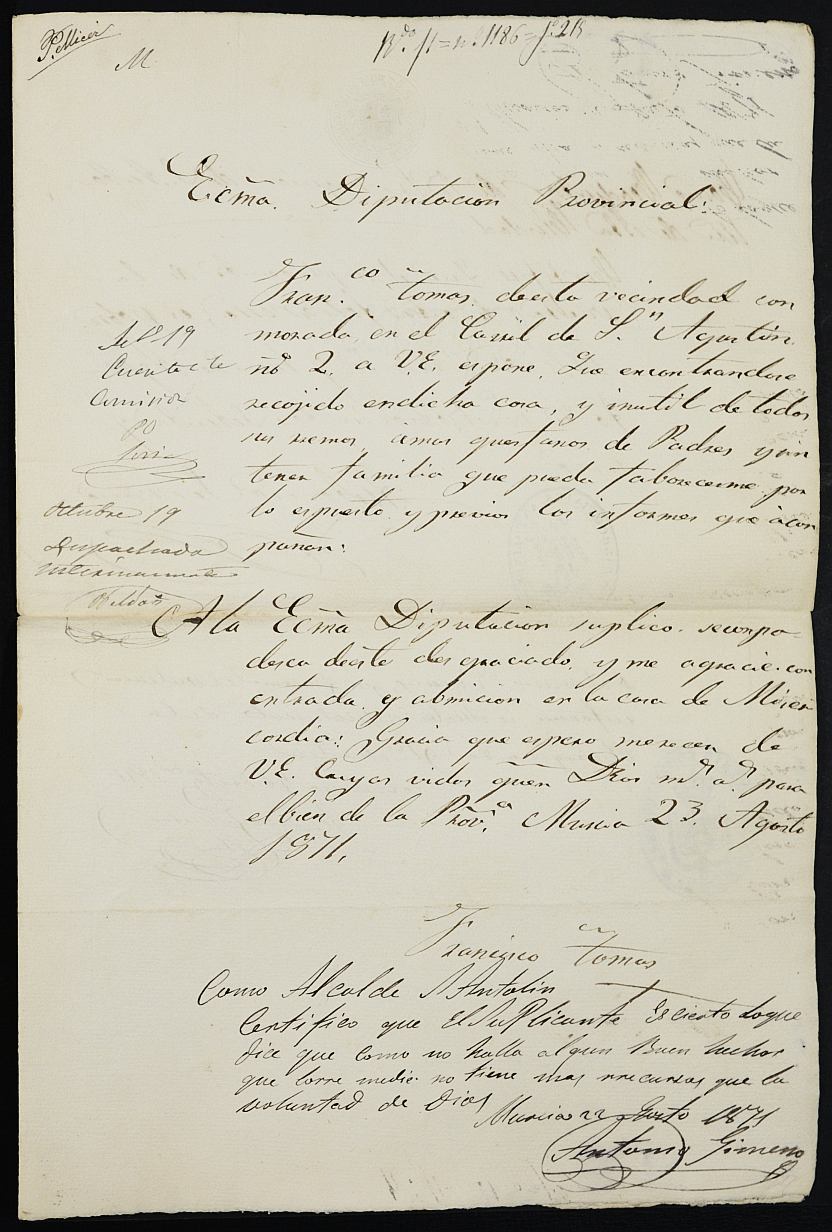 P. Micer
M
nº 1186 = fº 213
Ecma. Diputacion Provincial.
Fran.co tomas, desta vecindad con
morada, en el Carril de S.n Agustin
nº 2. a V.E. espone. Que encontrandose
recojido endicha casa, y inutil de todos
sus miemos, amas guerfanos de Padres y sin
tener familia que pueda faborecerme, por
lo espuesto, y previos los informes que acom
pañan:
Set.e 19
Cuentese te
Comision
Octubre 19
Despachada
interinamente
Roldan
A la Ecma Diputacion suplico. secompa-
desca deeste desgraciado, y me agracie con
entrada, y admicion en la casa de Miseri
cordia: Gracia que espero merecer de
V.E. Cuyas vidas guen Dios m.s a.s para
elbien de la Prov.a Murcia 23. Agosto
1871,
Francisco tomas
Como Alcalde S Antolin
Certifico que El SuPlicante Escierto Loque
dice que como no halla algun Buen hechor
que lorre medie no tiene mas rrecursos que la
voluntad de Dios
Murcia 22 Agosto 1871
Antonio Gimeno